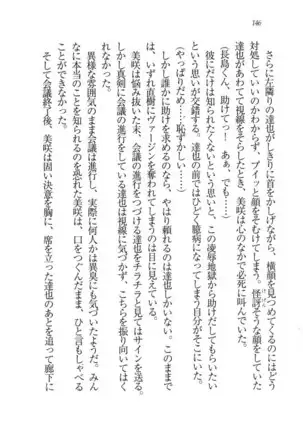 146
さらに左隣りの達也が、しきりに首をかしげながら、横顔を見つめてくるのにはどう
対処していいのかわからず、プイッと顔をそむけてしまう。怪訝そうな顔をしていた
達也があきらめて視線をそらしたとき、美咲は心のなかで必死に叫んでいた。
（長島くん、助けてっ！　ああ、でも……）
彼にだけは知られたくないという思いと、この凌辱地獄から助けだしてもらいたい
という思いが交錯する。達也の前ではひどく臆病になってしまう自分がそこにいた。
（やっぱりだめ……恥ずかしいっ……）
しかし誰かに助けを求めるのなら、やはり頼れるのは達也しかいない。このままで
は、いずれ直樹にヴァージンを奪われてしまうのは目に見えている。
美咲が会議の進行をしている達也をチラチラと見てはサインを送る。
しかし真剣に会議の進行をしている達也は視線に気づかず、こちらを振り向いてはく
れなかった。
異様な雰囲気のまま会議は進行し、実際に何人かは異臭にも気づいたようだ。みん
なに本当のことを知られるのを恐れた美咲は、口をつぐんだまま、ひと言もしゃべる
ことができなかった。
そして会議終了後、美咲は固い決意を胸に、席を立った達也のあとを追って廊下に